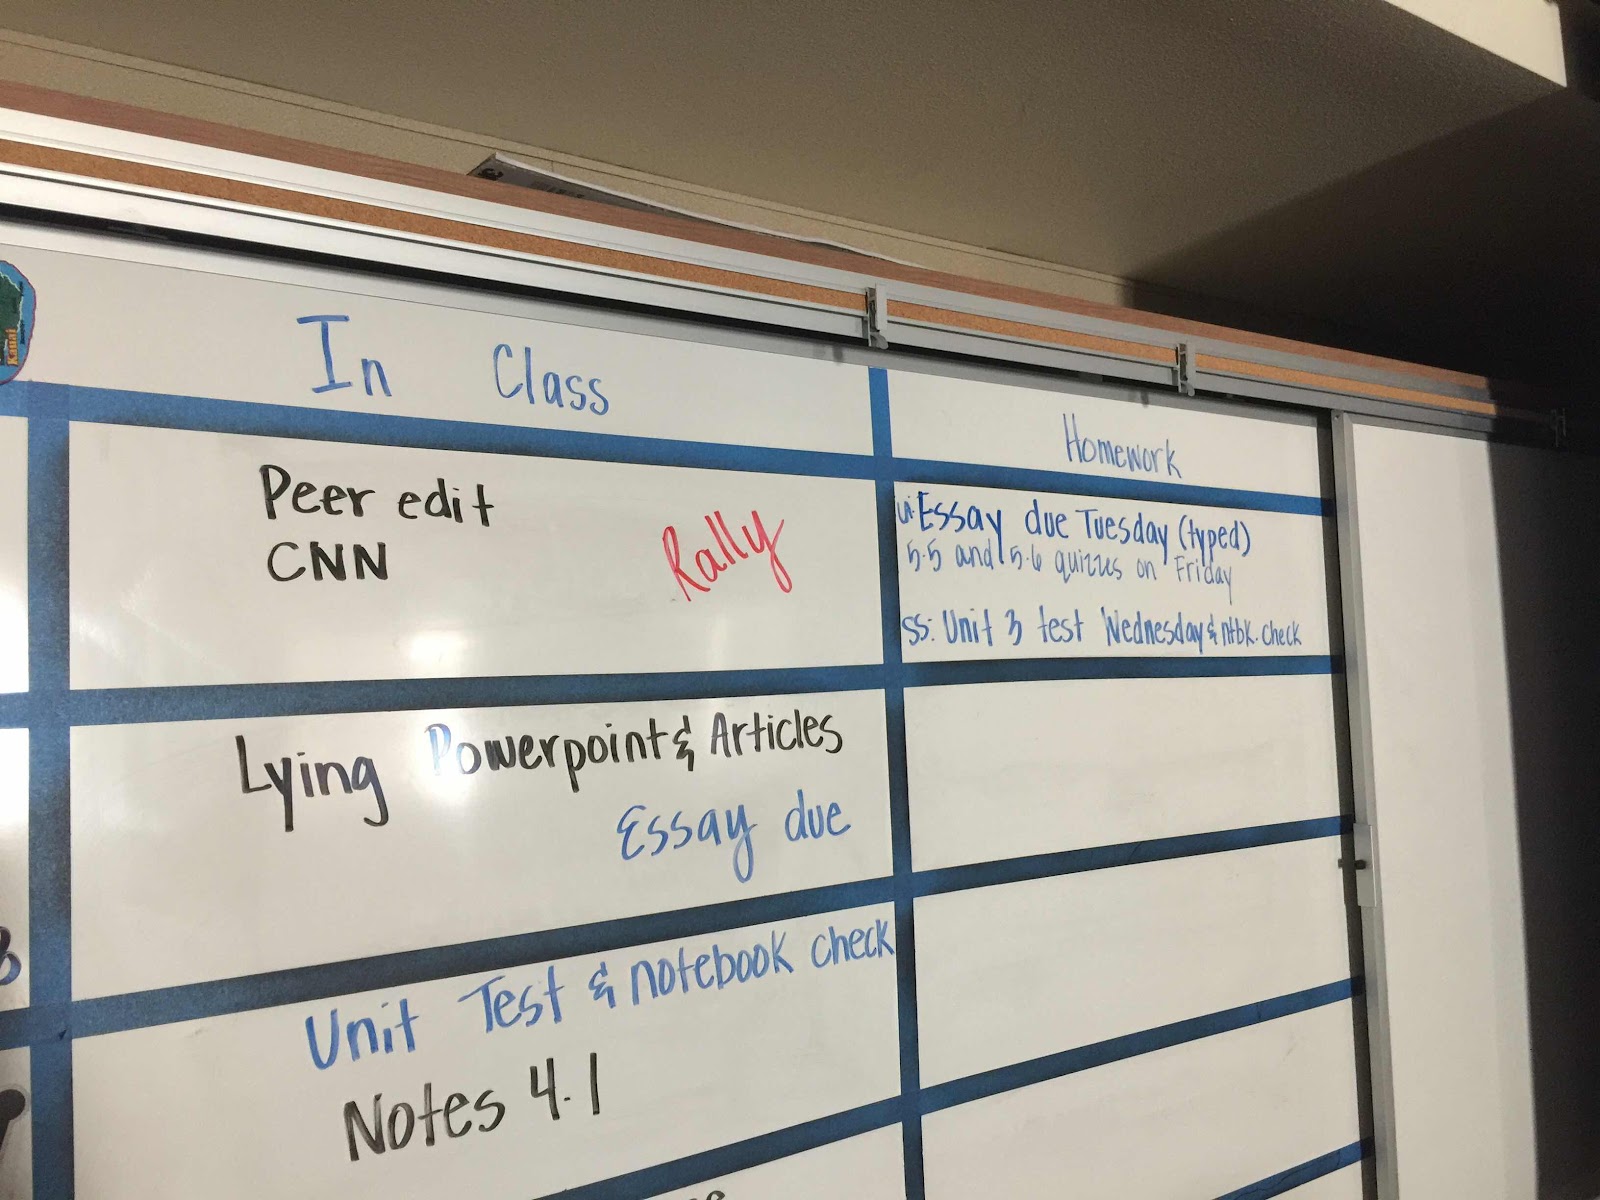 Kauai
In Class
Homework
Peer edit
CNN
Rally
Essay due Tuesday (typed)
5.5 and 5.6 quizzes on Friday
SS: Unit 3 test Wednesday & ntbk. check
Lying Powerpoint & Articles
Essay due
Unit Test & notebook check
Notes 4.1